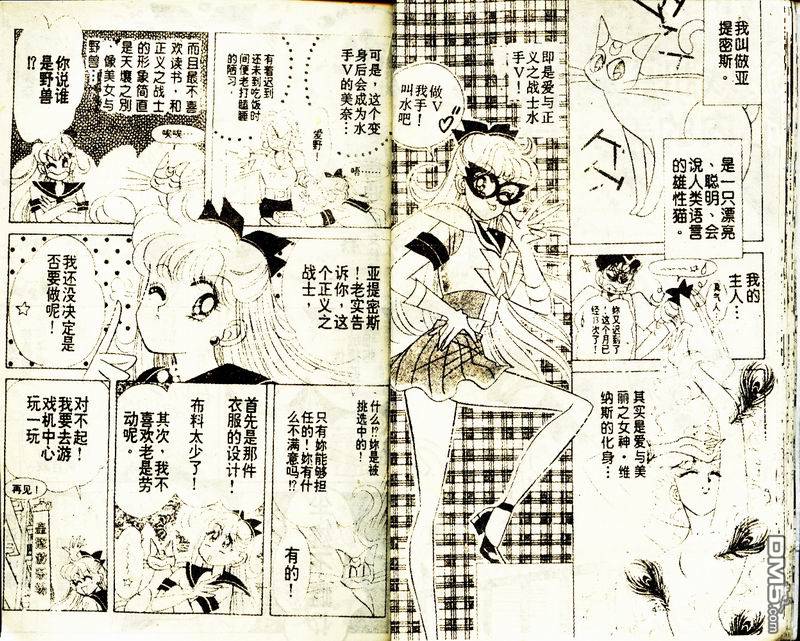 我叫做亚
提密斯。
是一只漂亮
、聪明、会
说人类语言
的雄性猫。
我的
主人…
真气人！
妳又迟到了
！这个月已
经13次了！
其实是爱与美
丽之女神·维
纳斯的化身…
即是爱与正
义之战士水
手V！
做V
我手！
叫水吧
可是，这个变
身后会成为水
手V的美奈…
有着迟到
还未到吃饭时
间便老打瞌睡
的陋习
爱野！
唔……
而且最不喜
欢读书，和
正义之战士
的形象简直
是天壤之别
，像美女与
野兽…
唉唉
你说谁
是野兽
!?
亚提密斯
！老实告
诉你，这
个正义之
战士，
我还没决定是
否要做呢！
什么!?妳是被
挑选中的！
只有妳能够担
任的！妳有什
么不满意吗!?
有的！
首先是那件
衣服的设计！
布料太少了！
其次，我不
喜欢老是劳
动呢。
对不起！
我要去游
戏机中心
玩一玩
再见！
DM5.com